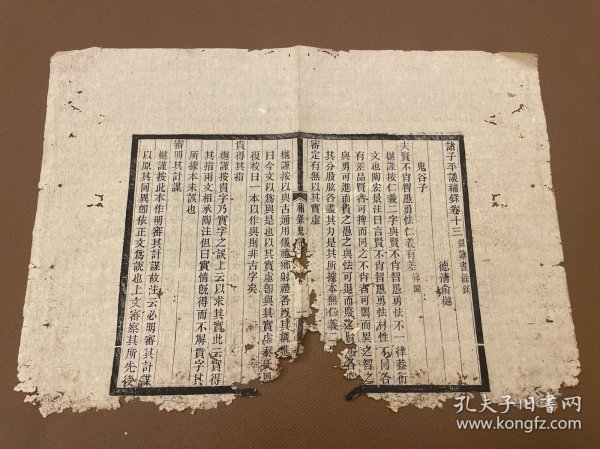 諸子平議補錄卷十三
德清俞樾
鬼谷子
夫賢不肖智愚勇怯仁義有差
樾謹按仁義二字與賢不肖智愚勇怯不一律蓋衍
文也陶宏景注曰言賢不肖智愚勇怯材性不同各
有差品賢者可捭而同之不肖者可闔而異之智之
與勇可進而貴之愚之與怯可退而賤之賢愚各當
其分股肱各盡其力是其所據本無仁義二
審定有無以其實虛
樾謹按以與古通用儀禮鄉射禮各以其耦進
曰今文以為與是也以其實虛即與其實虛
復校曰一本以作與則非古字矣
貴得其指
樾謹按貴字乃實字之誤上云以求其實此云實得
其指兩文相承陶注但曰實情既得而不解貴字其
所據本未誤也
審明其計謀
樾謹按此本作明審其計謀故注云必明審其計謀
以原其同異即依正文為說也上文審察其所先後
補錄
孔夫子旧书网
www.kongfz.com